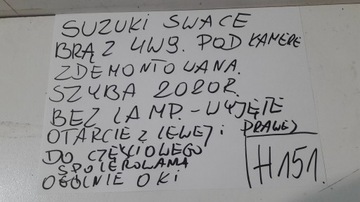 SUZUKI SWACE
BRĄZ 4W9. POD KAMERE
ZDEMONTOWANA.
SZYBA 2020R.
BEZ LAMP.-WYJĘTE
OTARCIE Z LEWEJ I PRAWEJ
DO CZĘŚCIOWEGO
SPOLEROWANIA
OGÓLNIE OKI
H151.